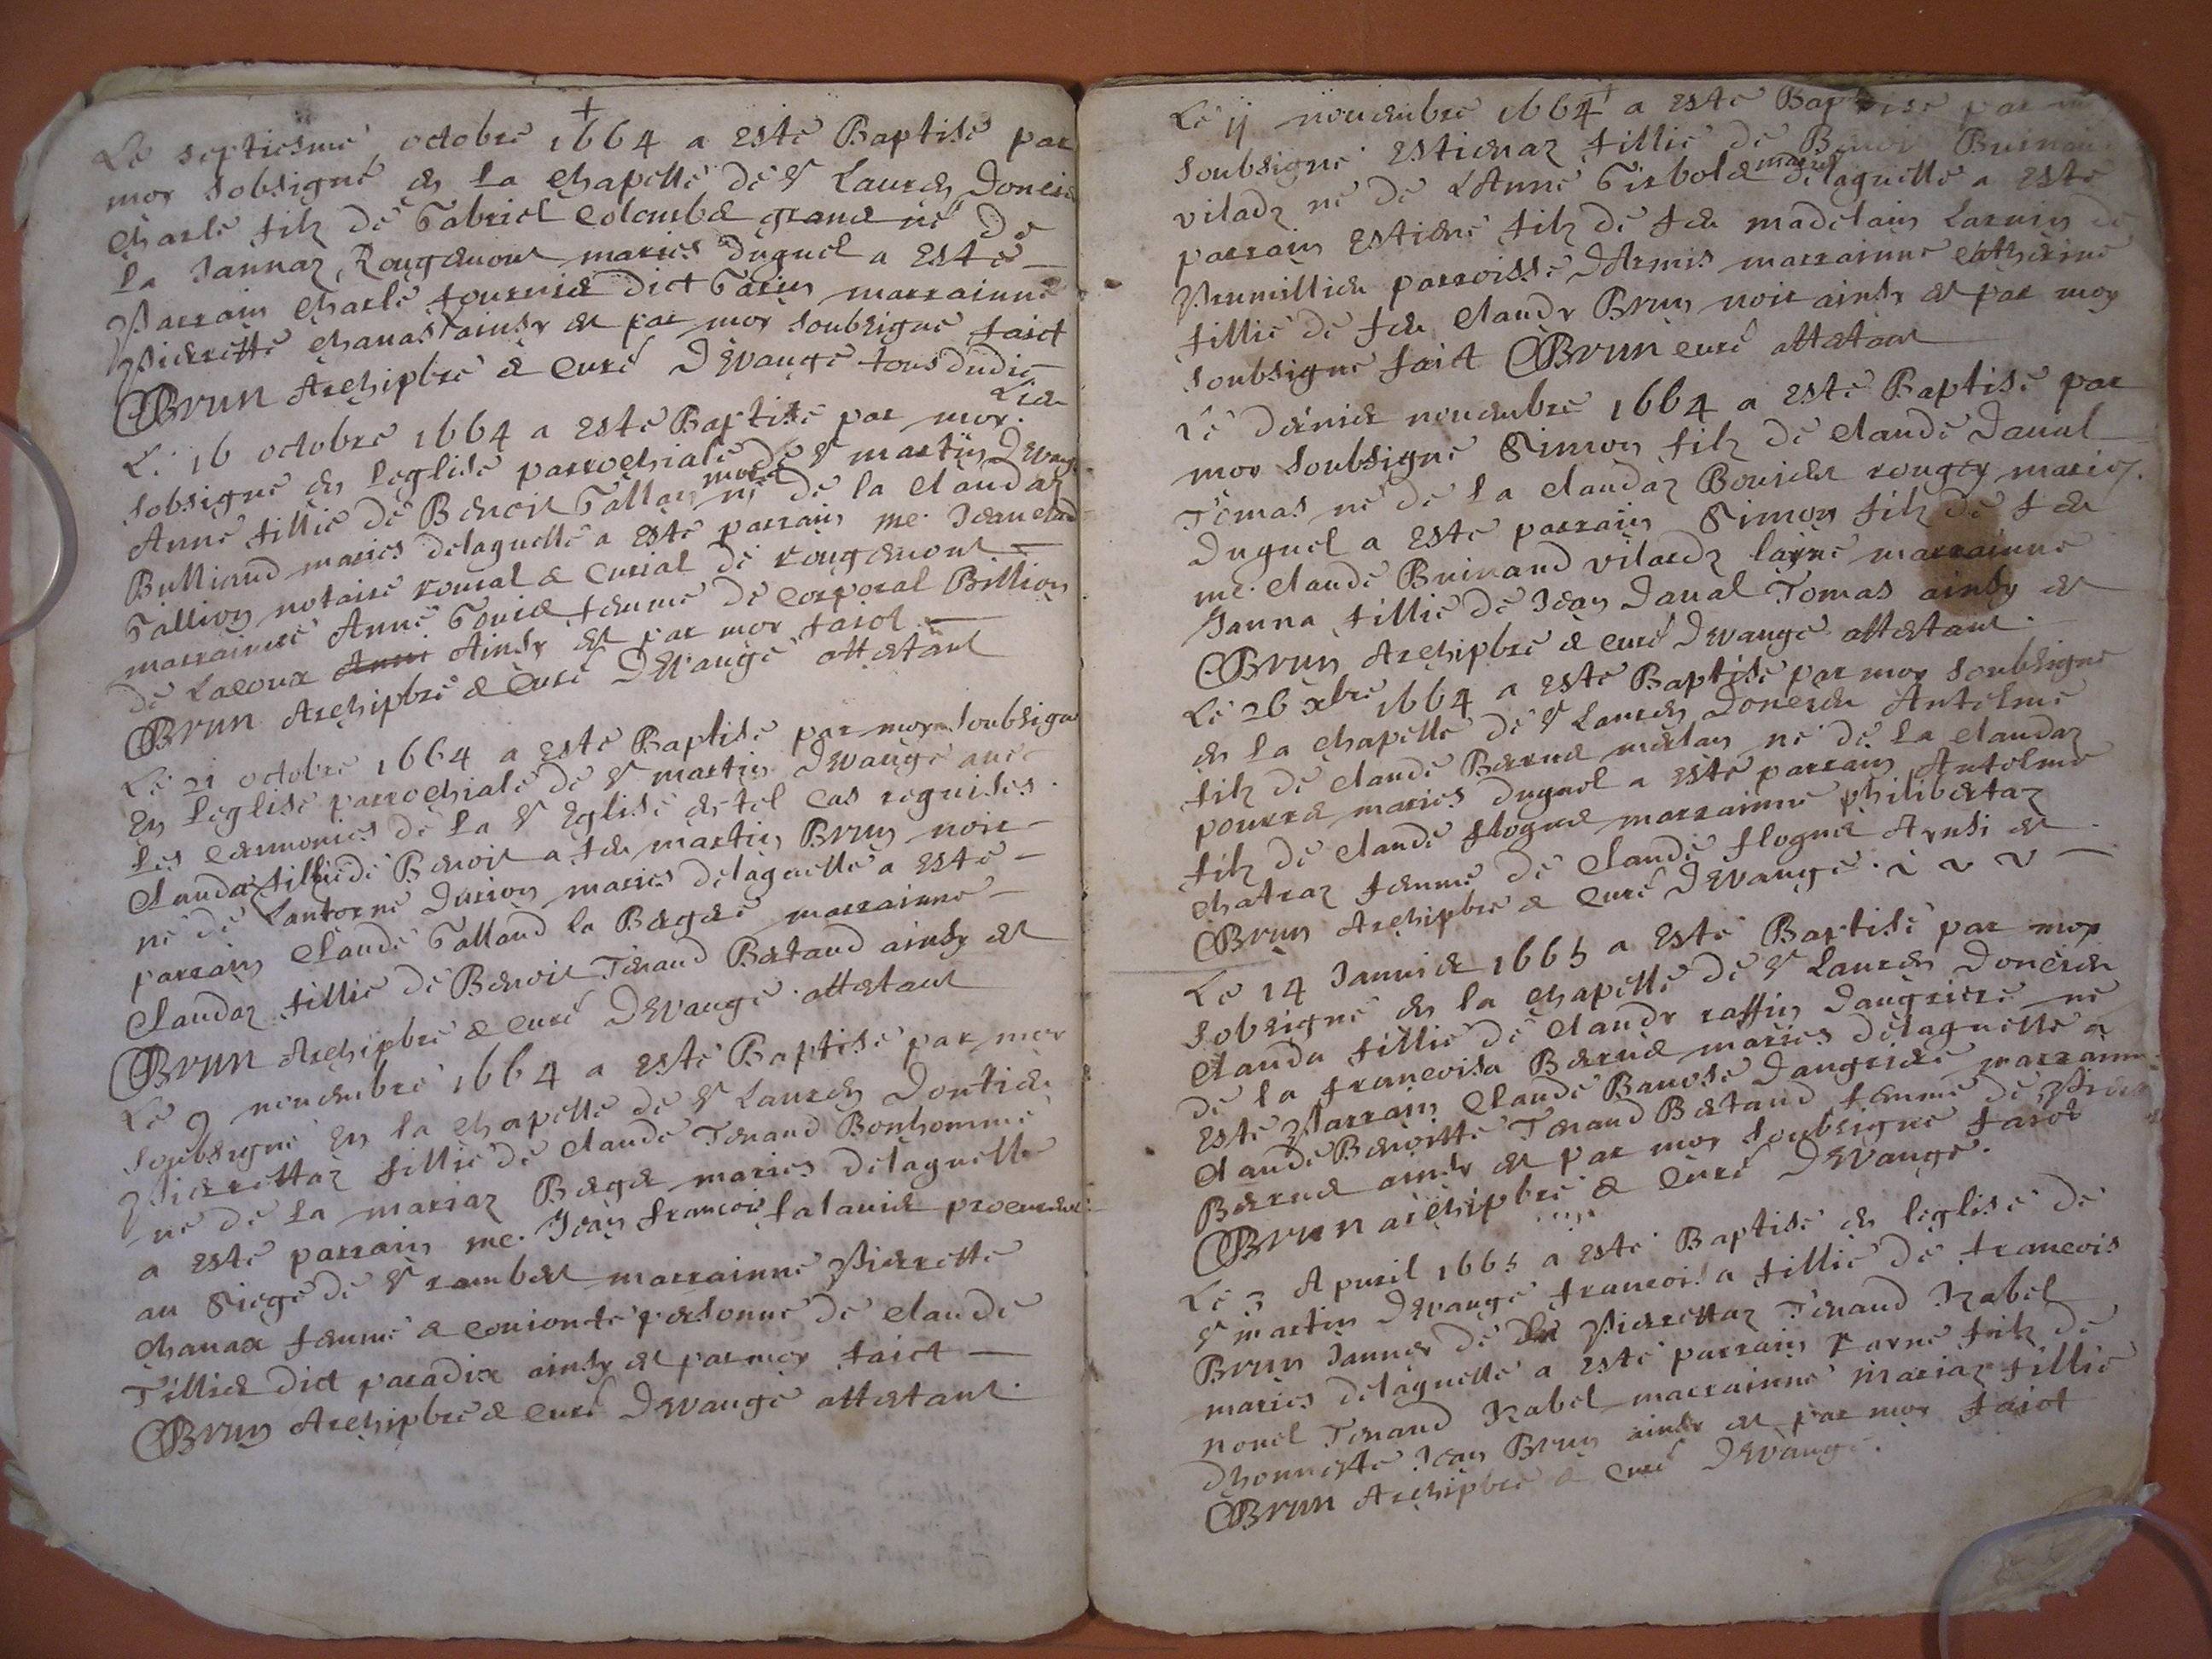 +
Le septiesme octobre 1664 a esté Baptisé par
moy sobsigné en la chapelle de St Lauren Doncie
Charle filz de Gabriel Colombet grand né de
la Jannaz Rougemont mariés duquel a esté
Parrain Charle fournier dict Garin marrainne
Pierrette Chanas ainsy est par moy soubsigné faict
Brun Archipbre & Curé Devauge tous dudic
Lieu
Le 16 octobre 1664 a esté Baptisé par moy
sobsigné en leglise parrochiale de St martin Devauge
Anne fillie de Benoit Gallan né de la Claudaz
Bulliand mariés delaquelle a esté parrain me. Jean
Gallion notaire roial & Curial de rougemont
marrainne Anne femme de Corporal Billion
de Lacoux Ainsy est par moy faict
Brun Archipbre & Curé Devauge attestant
Le 21 octobre 1664 a esté Baptisé par moy soubsigné
En leglise parrochiale de St martin Devauge avec
les ceremonies de la St Eglise en tel cas requises
Claudaz fillie de Benoit a feu martin Brun noir
né de Lantorne Durion mariés delaquelle a esté
parrain Claude Galland la Bergere marrainne
Claudaz fillie de Benoit Tenand Betand ainsy est
Brun Archipbre & Curé Devauge attestant
Le 9 novembre 1664 a esté Baptisé par moy
soubsigné En la chapelle de St Lauren Dontie
Pierrettaz fillie de Claude Tenand Bonhomme
né de la mariaz Berger mariés delaquelle
a esté parrain me. Jean francois falavier procureur
au siege de St rambert marrainne Pierrette
Chanax femme & conionte personne de Claude
Tillier dict paradix ainsy est par moy faict
Brun Archipbre & Curé Devauge attestant
Le 11 novembre 1664 a esté Baptisé par
soubsigné Estienaz fillie de Benoi
viladz né de LAnne Girbold mariés delaquelle a esté
parrain Estiene filz de feu madelain Larnin de
Prumillieu parroisse DArmis marrainne Catherine
fillie de feu Claudy Brun noir ainsy est par moy
soubsigné faict Brun curé attestant
Le dernier novembre 1664 a esté Baptisé par
moy soubsigné Simon filz de Claude Daval
Tomas né de la Claudaz Bouvier rouger mariez
duquel a esté parrain Simon filz de feu
me. Claude Buinand vilardz layné marrainne
Janna fillie de Jean Daval Tomas ainsy est
Brun Archipbre & Curé Devauge attestant
Le 26 xbre 1664 a esté Baptisé par moy soubsigné
en la chapelle de St Lauren Doncieu Antelme
filz de Claude Bernet né de la Claudaz
pourret mariés duquel a esté parrain Antelme
filz de Claude flognet marrainne philibertaz
Chatraz femme de Claude flognet Aynsi est
Brun Archipbre & Curé Devauge
Le 14 Janvier 1665 a esté Baptisé par moy
sobsigné en la chapelle de St Lauren Doncieu
Clauda fillie de Claudy raffin Daugriere né
de la francoisa Bernet mariés delaquelle a
esté Parrain Claude Bavose Daugriere marrainne
Claude Benoitte Tenand Betand femme de
Bernet ainsy est par moy soubsigné faict
Brun archipbre & Curé Devauge
Le 3 Apuril 1665 a esté Baptisé en leglise de
St martin Devauge francoisa fillie de francois
Brun Janner de Pierrettaz Tenand Izabel
mariés delaquelle a esté parrain filz de
nouel Tenand Izabel marrainne mariaz fillie
dhonneste Jean Brun ainsy est par moy faict
Brun Archipbre & Curé Devauge